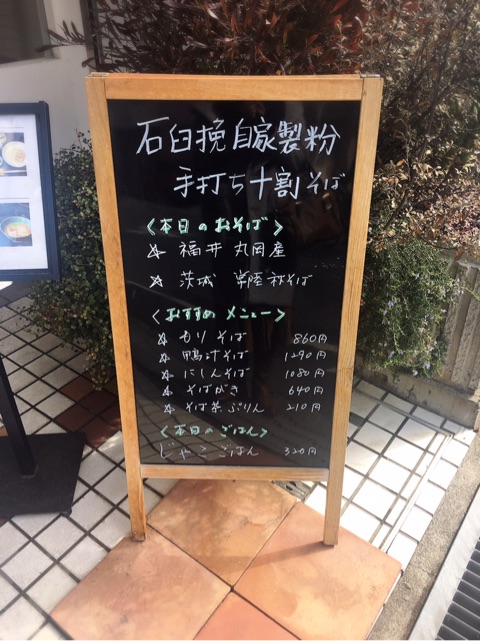 石臼挽自家製粉
手打ち十割そば
〈本日のおそば〉
☆ 福井 丸岡産
☆ 茨城 常陸秋そば
〈おすすめ メニュー〉
☆ もりそば 860円
☆ 鴨汁そば 1290円
☆ にしんそば 1080円
☆ そばがき 640円
☆ そば茶ぷりん 210円
〈本日のごはん〉
じゃこごはん 320円